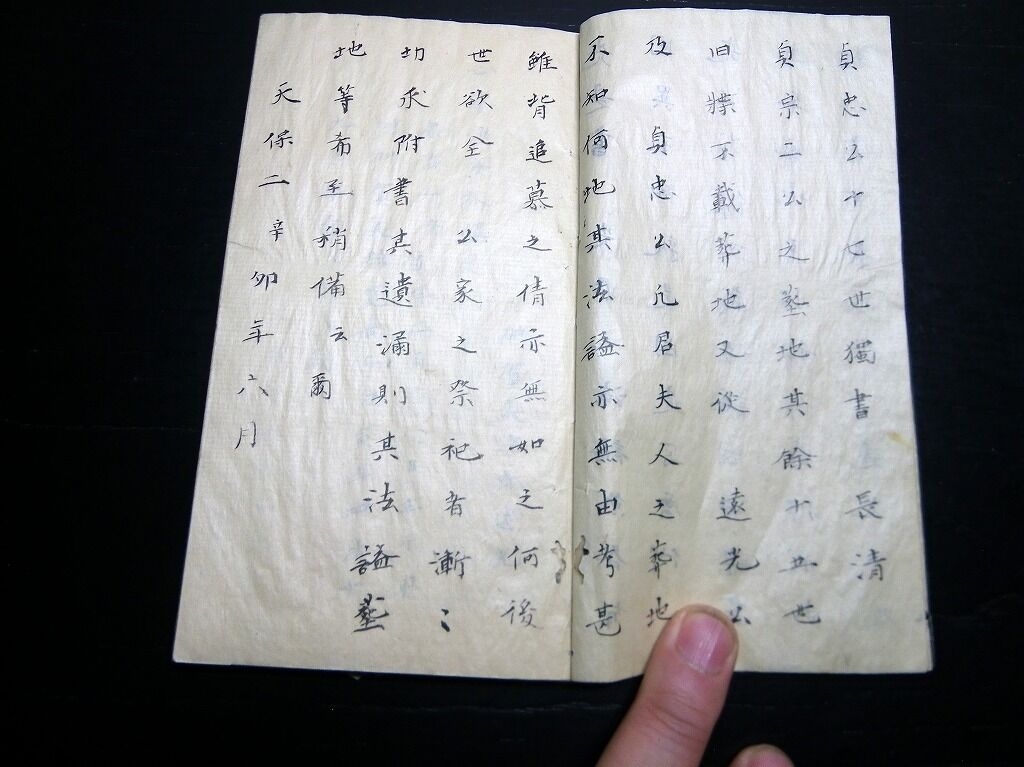 貞忠公十七世獨書 長清
貞宗二公之塟地其餘十五世
旧牒不載葬地又從 遠光公
及 貞忠公凡君夫人之葬地
不知何地其法謚亦無由考甚
雖背追慕之情亦無如之何後
世欲全 公家之祭祀者漸〻
切求附書其遺漏則其法謚塟
地等希至稍備云爾
天保二辛卯年六月